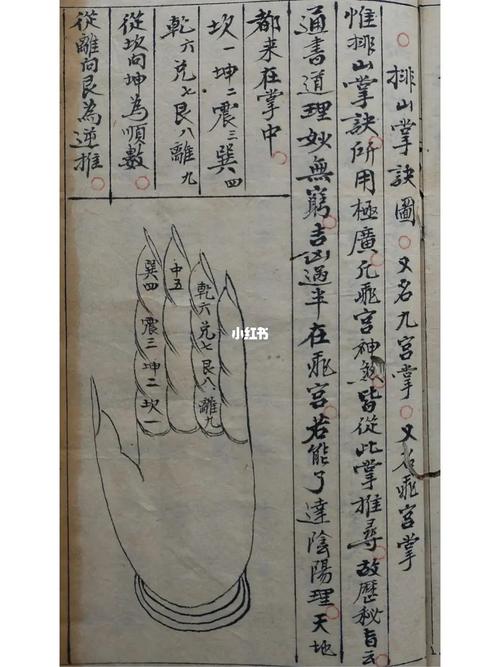 排山掌訣圖 又名九宮掌 又名飛宮掌
惟排山掌訣所用極廣凡飛宮神煞皆從此掌推尋故歷秘旨云
通書道理妙無窮吉凶過半在飛宮若能了達陰陽理天地
都来在掌中
坎一坤二震三巽四
乾六兑七艮八離九
從坎向坤為順數
從離向艮為逆推
乾六兑七艮八離九
中五
巽四震三坤二坎一
小红书